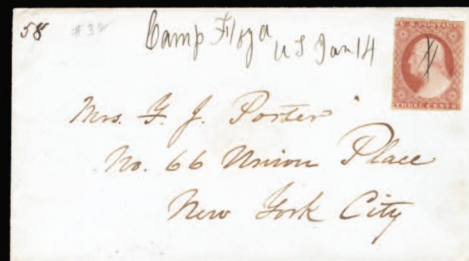 58 #32
Camp Floyd U T Jan 14
U.S. POSTAGE
THREE CENTS
Mrs. F. J. Porter
No. 66 Union Place
New York City